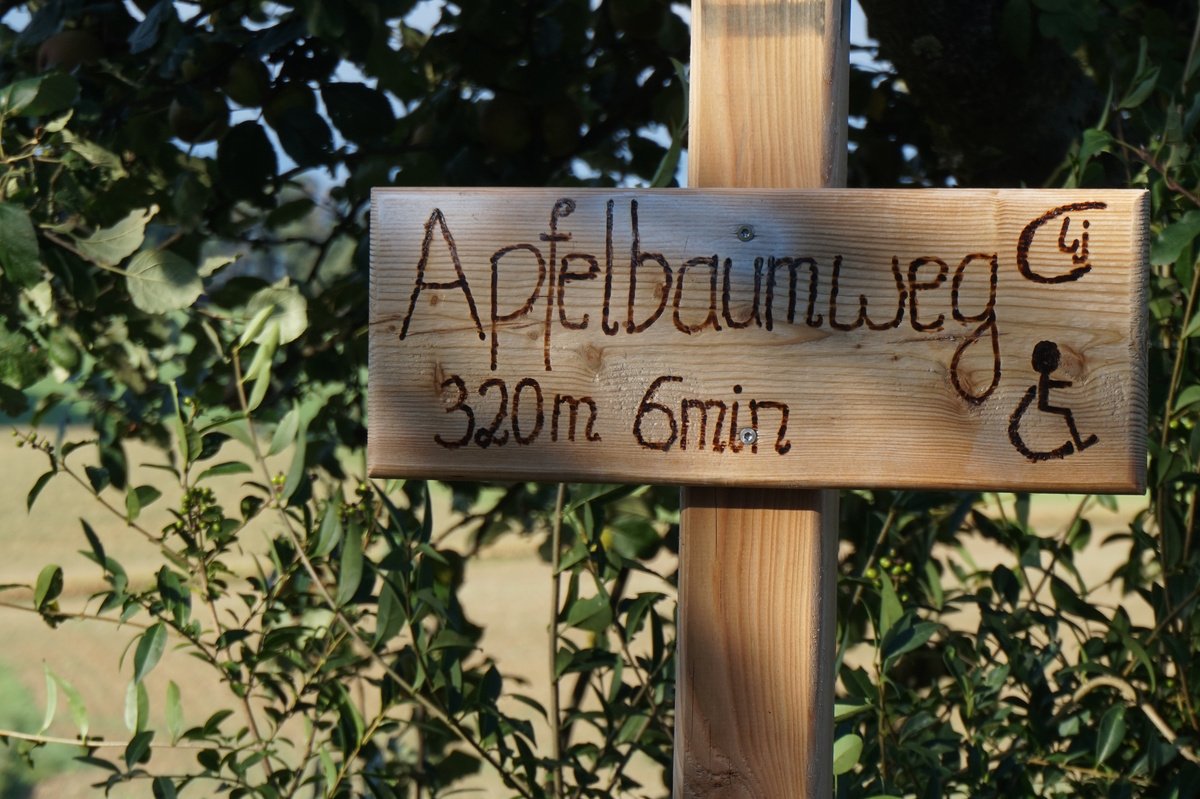 Apfelbaumweg
320m 6min